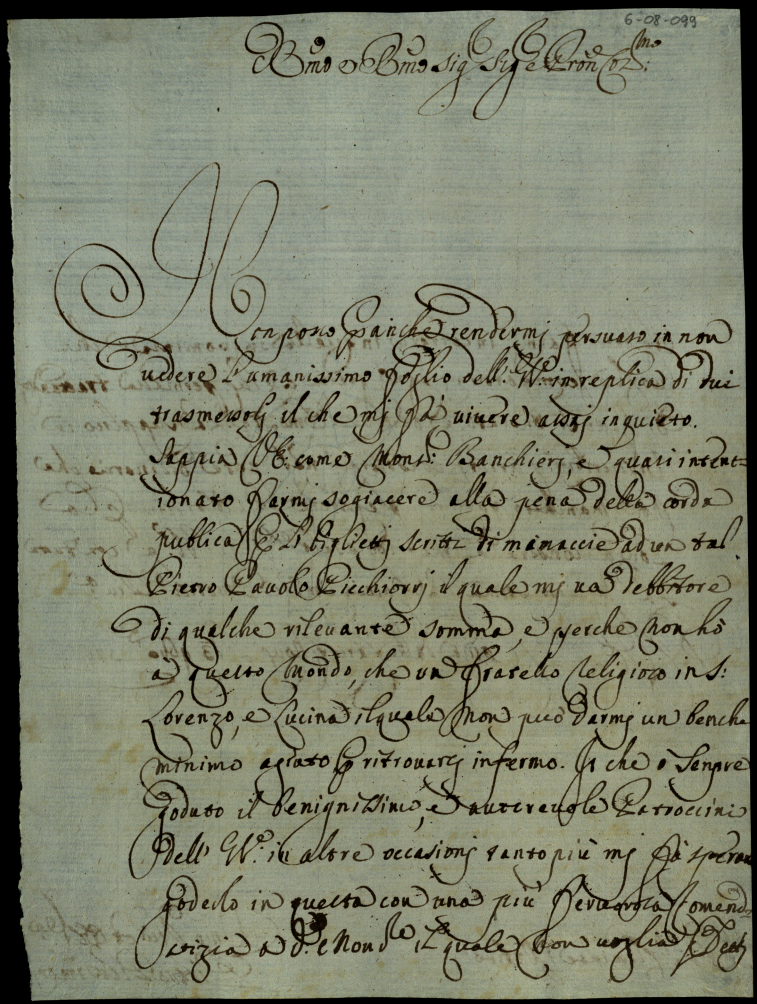 6-08-099
Illmo e Rmo Sigr Sigr e Pron Colmo:
Non posso per anche rendermj persuaso in non
vedere l'umanissimo foglio dell: in replica di dui
trasmessolj il che mj fà vivere assaj inquieto.
Sappia come Monsr: Banchierj, e quasi intent=
ionato farmj sogiacere alla pena della corda
publica per li biglietti scritti di minaccie ad un tal
Pietro Pauolo Picchiorrj il quale mj và debbitore
di qualche rilevante somma, e perche non hò
à questo Mondo, che un fratello Religioso in S:
Lorenzo, e Lucina il quale non può darmj un benche
minimo agiuto per ritrovarsj infermo. Il che ò senpre
goduto il benignissimo, e autorevole Patroccini
dell' in altre occasionj tanto più mj fà sperare
goderlo in questa con una più fervorosa Comend=
atizia a do Monsre il quale non voglia